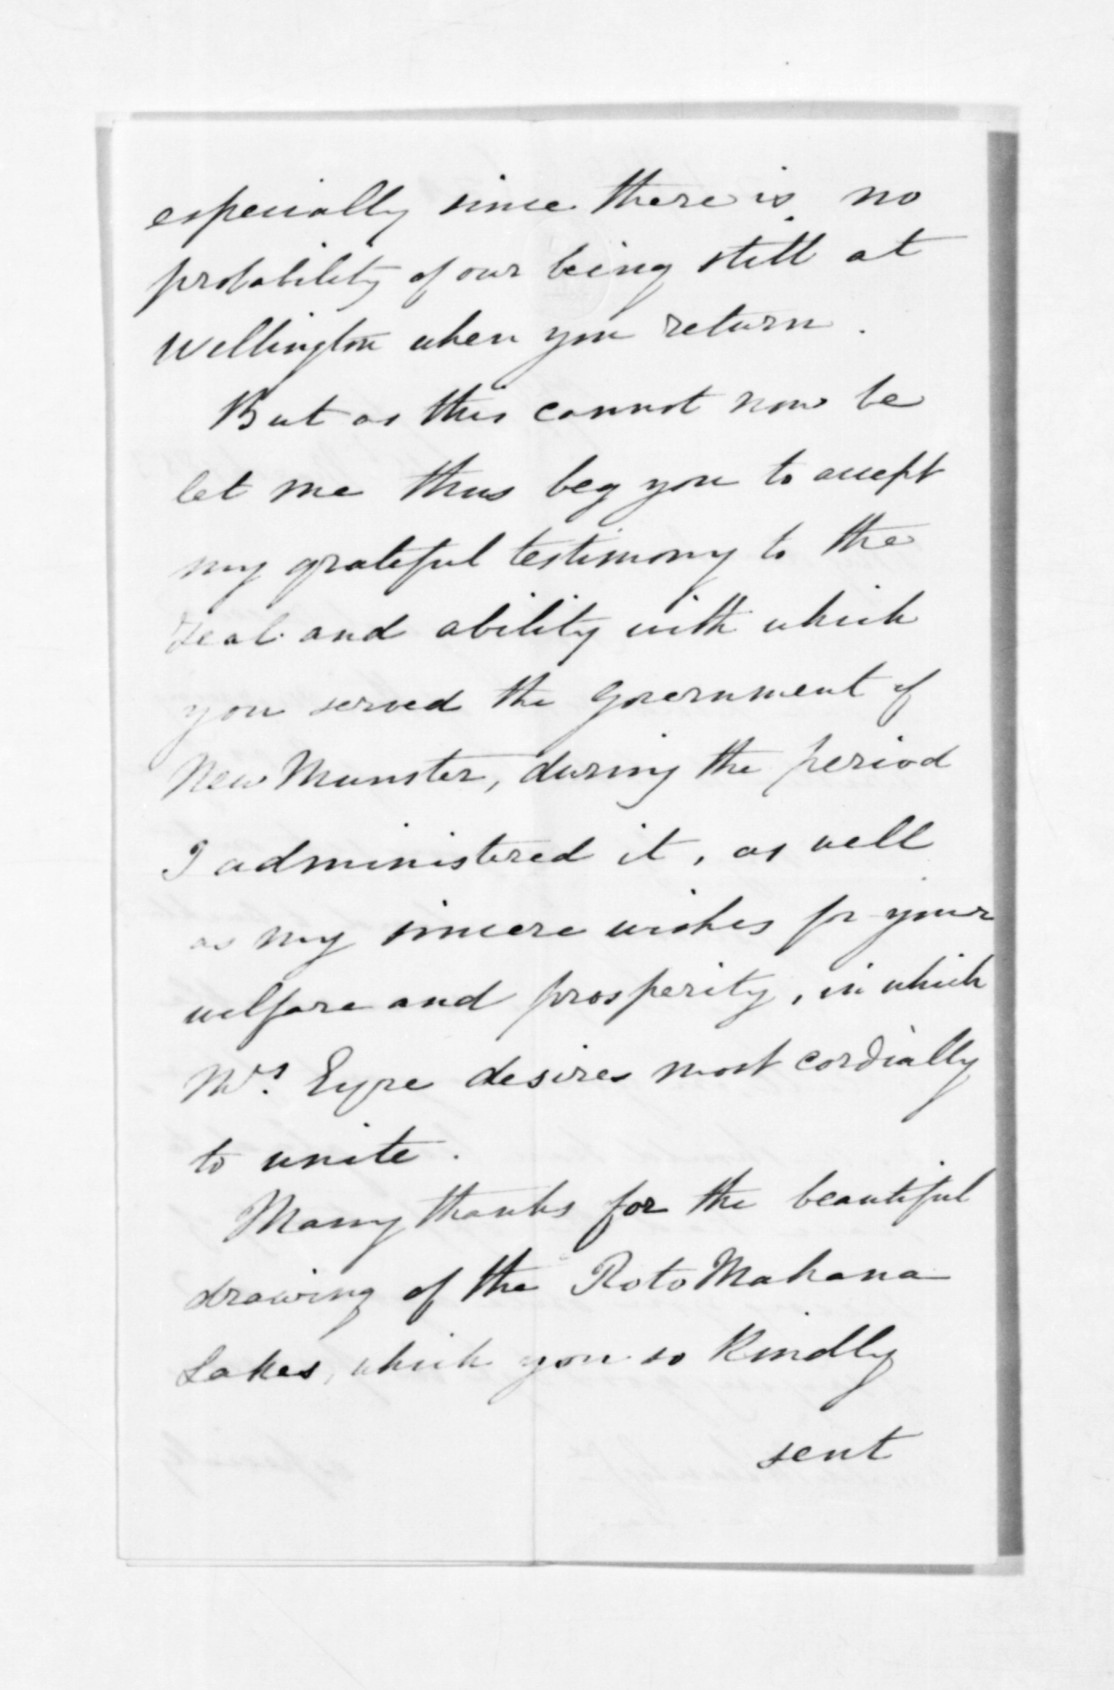 especially since there is no
probability of our being still at
Wellington when you return.
But as this cannot now be
let me thus beg you to accept
my grateful testimony to the
zeal and ability with which
you served the Government of
New Munster, during the period
I administered it, as well
as my sincere wishes for your
welfare and prosperity, in which
Mrs. Eyre desires most cordially
to unite.
Many thanks for the beautiful
drawing of the Roto Mahana
Lakes, which you so kindly
sent